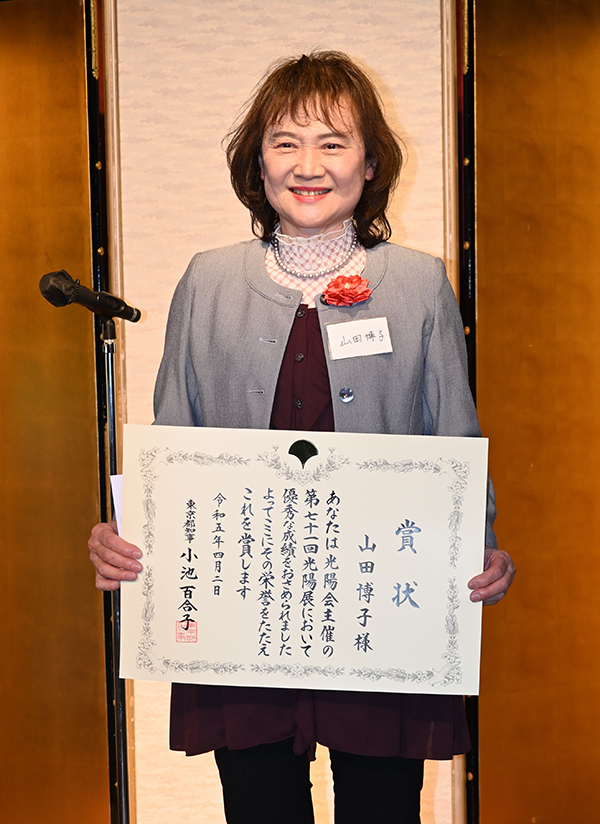 山田博子
賞状
山田博子様
あなたは光陽会主催の
第七十一回光陽展において
優秀な成績をおさめられました
よってここにその栄誉をたたえ
これを賞します
令和五年四月二日
東京都知事 小池百合子